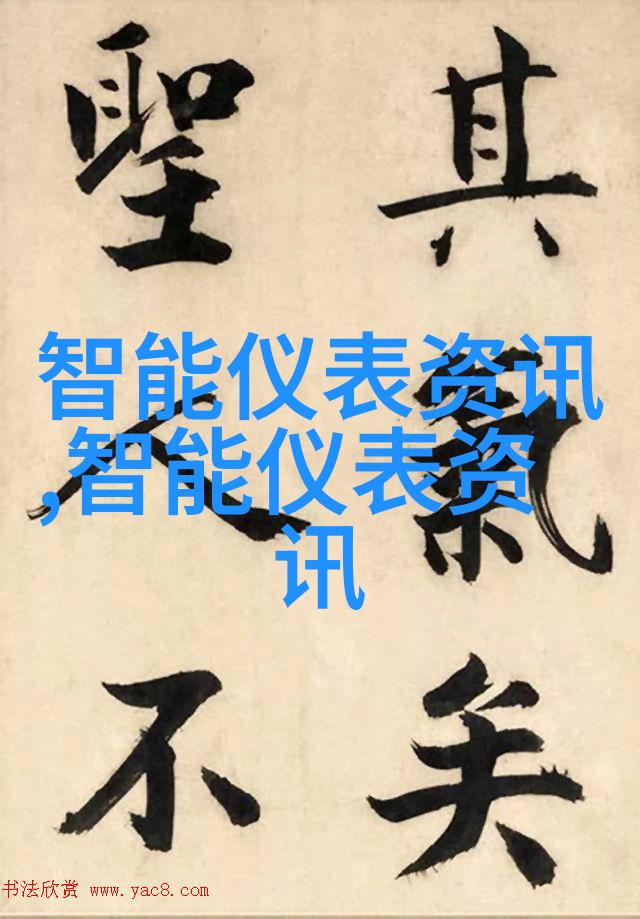 其氣矣
聖人不
智能仪表资讯
,智能仪表资
讯
书法欣赏 www.yac8.com